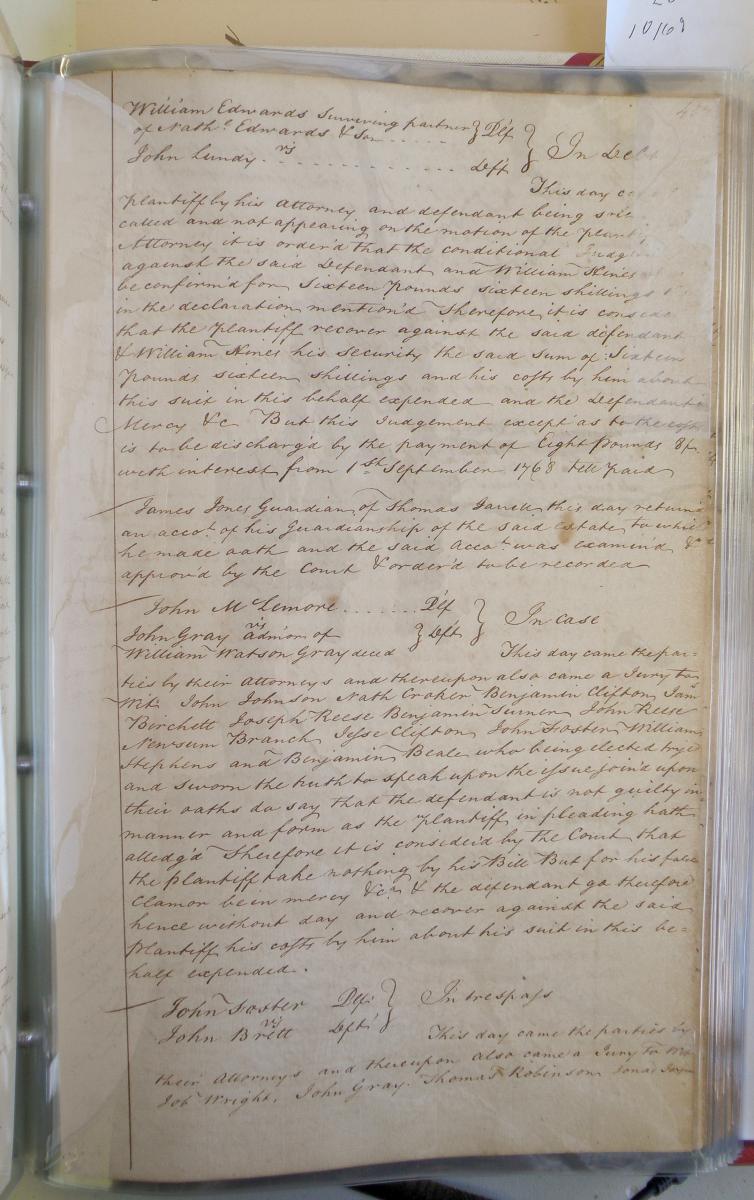 10/69
William Edwards Surviving partner } Plf }
of Nath.l Edwards & Son . . . . . } In Debt
vs
John Lundy . . . . . . . . . . . . Deft
This day
Plantiff by his Attorney and defendant being
called and not appearing on the motion of the
Attorney it is order'd that the conditional
against the said Defendant and William Hines
be confirm'd for Sixteen Pounds sixteen shillings
in the declaration mention'd Therefore it is
that the Plantiff recover against the said defendant
& William Hines his security the said sum of Sixteen
Pounds sixteen shillings and his costs by him about
this suit in this behalf expended and the Defendant in
Mercy &c But this Judgement except as to the costs
is to be discharg'd by the payment of Eight Pounds 8/.
with interest from 1st September 1768 till paid
James Jones Guardian of Thomas this day return'd
an accot. of his Guardianship of the said Estate to which
he made oath and the said Accot. was examin'd &
approv'd by the Court & order'd to be recorded
John McLemore . . . . . . . Plf } In case
vs
John Gray admor of } Deft
William Watson Gray decd This day came the par=
ties by their Attorneys and thereupon also came a Jury to
Wit. John Johnson Nath Croker Benjamin Clifton Sam
Birchett Joseph Reese Benjamin Turner John Reese
Newsum Branch Jesse Clifton John Foster William
Stephens and Benjamin Beale who being elected
and sworn the truth to speak upon the issue join'd upon
their oaths do say that the defendant is not guilty in
manner and form as the Plantiff in pleading hath
alledg'd Therefore it is consider'd by the Court that
the plantiff take nothing by his Bill But for his false
Clamor be in mercy &c. & the defendant go therefore
hence without day and recover against the said
Plantiff his costs by him about his suit in this be=
half expended.
John Foster Plf } In trespass
vs
John Britt Deft
This day came the parties by
their Attorneys and thereupon also came a Jury to Wit
Job Wright, John Gray Thomas Robinson